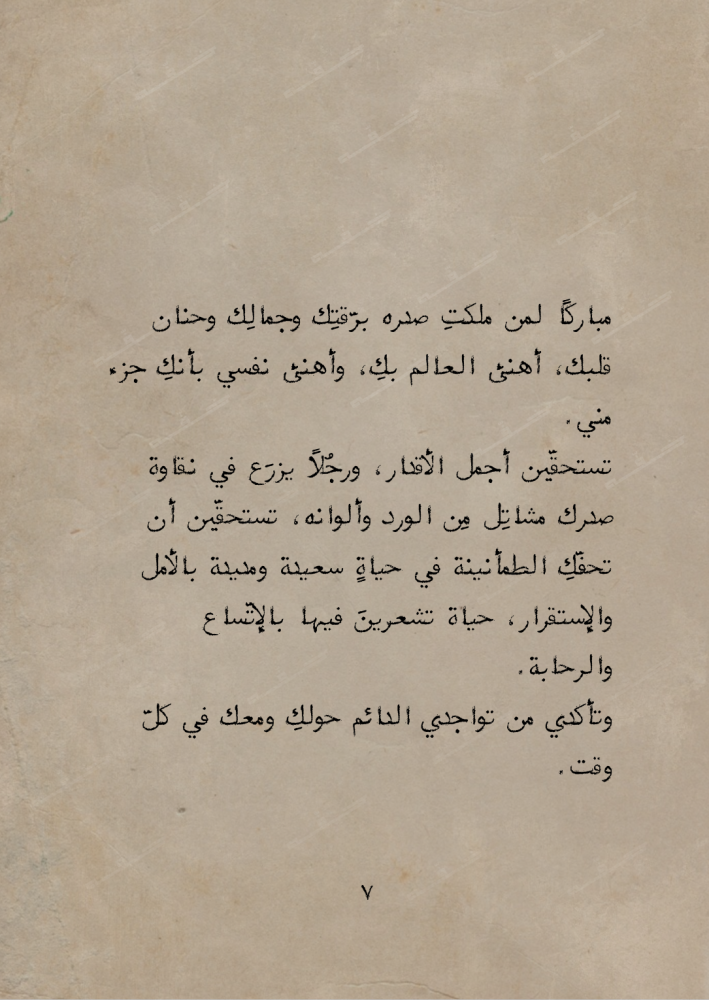 مباركًا لمن ملكتِ صدره برّقتِك وجمالِك وحنان
قلبك، أهنئ العالم بكِ، وأهنئ نفسي بأنكِ جزء
مني.
تستحقّين أجمل الأقدار، ورجُلاً يزرَع في نقاوة
صدرك مشاتِل مِن الورد وألوانه، تستحقّين أن
تحفّكِ الطمأنينة في حياةٍ سعيدة ومديدة بالأمل
والإستقرار، حياة تشعرينَ فيها بالإتّساع
والرحابة.
وتأكدي من تواجدي الدائم حولكِ ومعك في كلّ
وقت.
٧